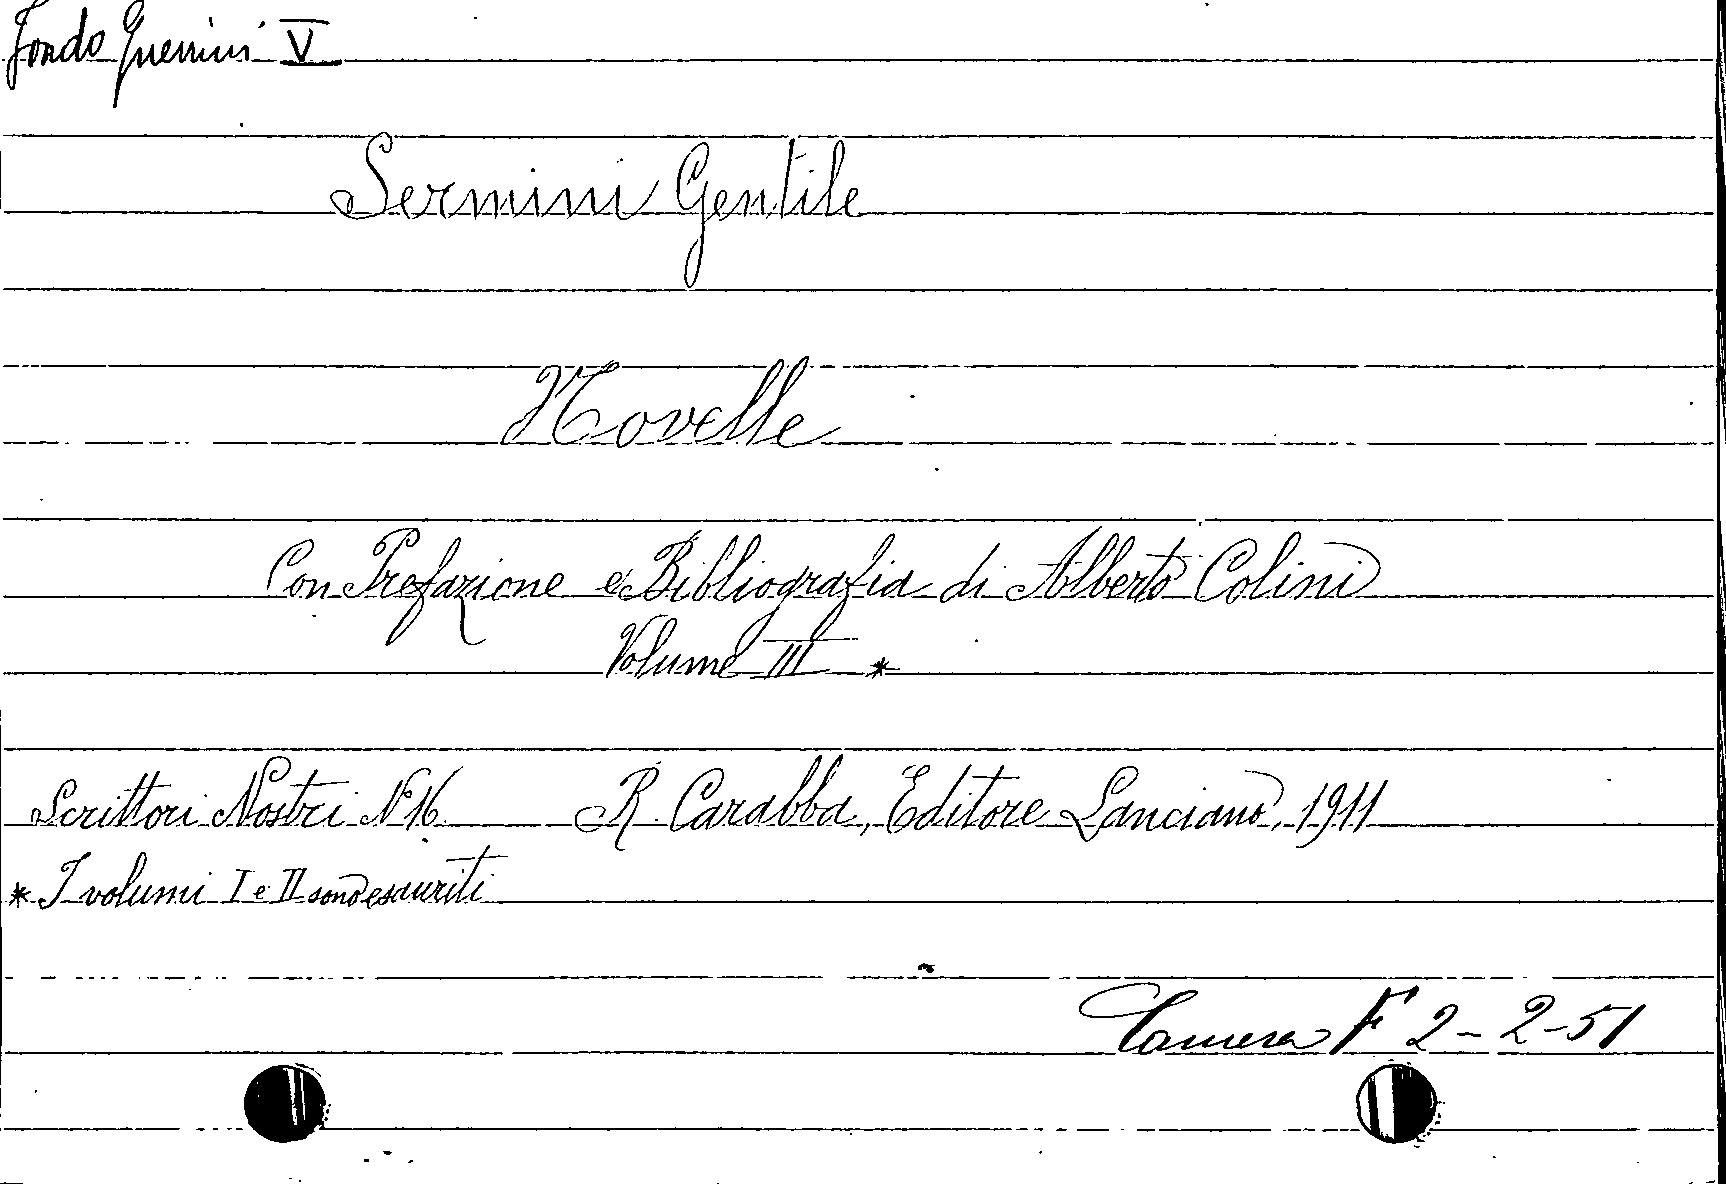 Fondo Guerrini V
Sermini Gentile
Novelle
Con Prefazione e Bibliografia di Alberto Colini
Volume III *
Scrittori Nostri N° 16 R. Carabba, Editore Lanciano, 1911
* I volumi I e II sono esauriti
Camera F 2-2-51